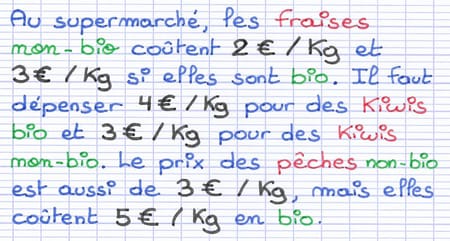 Au supermarché, les fraises
non-bio coûtent 2 € / Kg et
3 € / Kg si elles sont bio. Il faut
dépenser 4 € / Kg pour des Kiwis
bio et 3 € / Kg pour des Kiwis
non-bio. Le prix des pêches non-bio
est aussi de 3 € / Kg, mais elles
coûtent 5 € / Kg en bio.